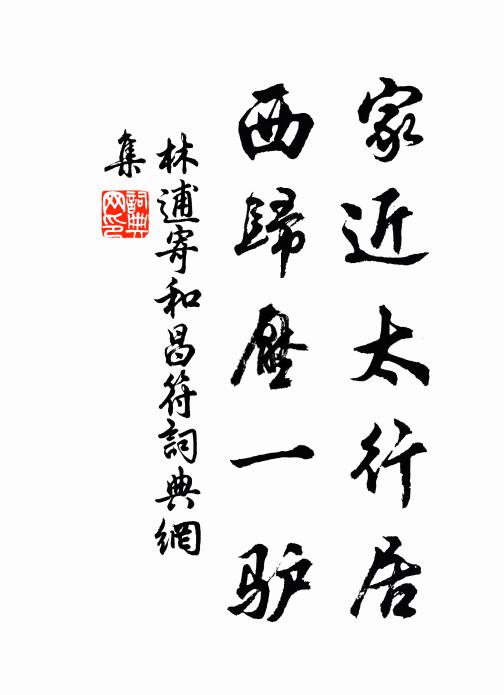 家近太行居
西歸壓一驴
林逋寄和昌符詞典網
集
詞典网印